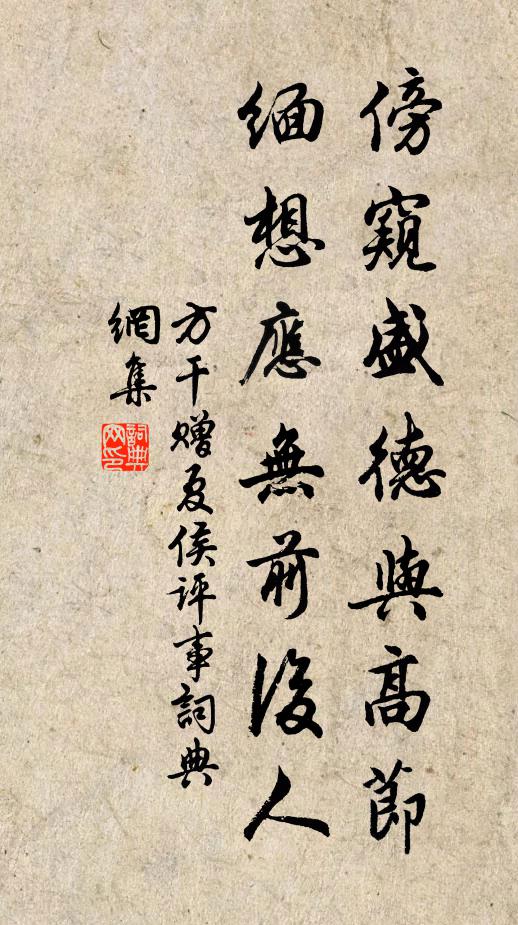 傍窺盛德與高節
緬想應無前後人
方干贈夏侯評事詞典
網集
詞典網印